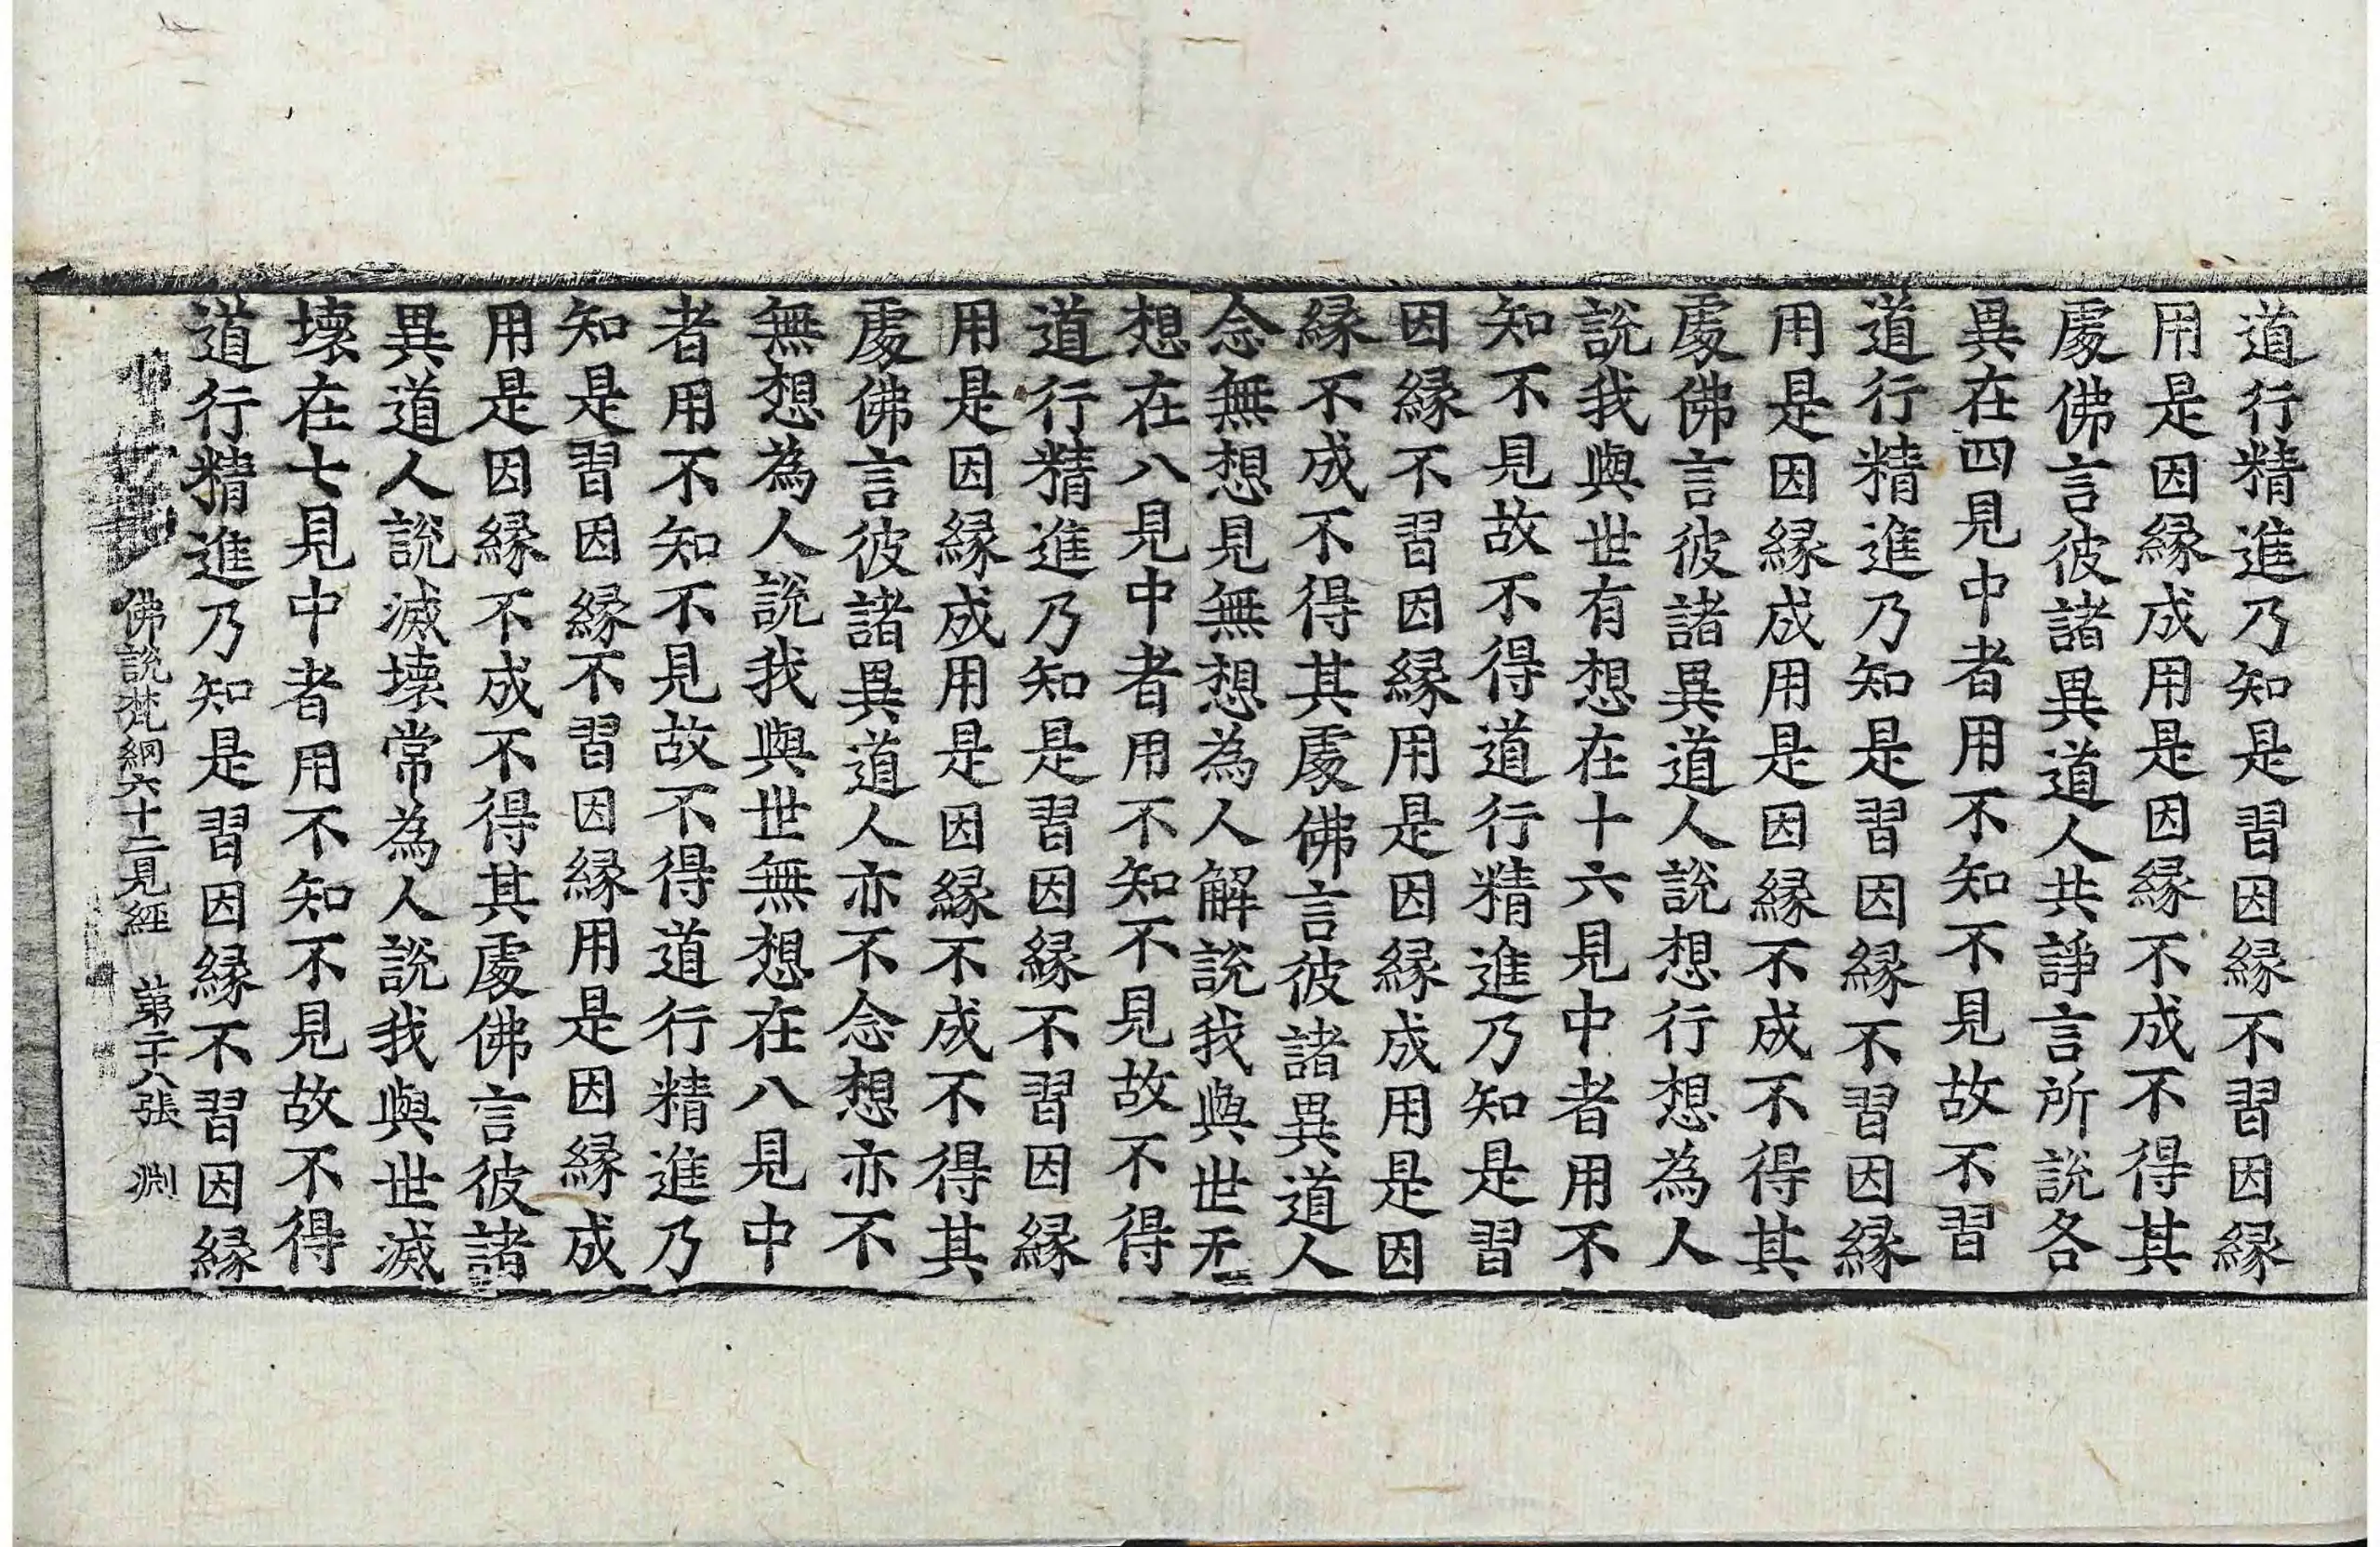 道行精進乃知是習因縁不習因縁
用是因縁成用是因縁不成不得其
處佛言彼諸異道人共諍言所說各
異在四見中者用不知不見故不習
道行精進乃知是習因縁不習因縁
用是因縁成用是因縁不成不得其
處佛言彼諸異道人說想行想為人
說我與世有想在十六見中者用不
知不見故不得道行精進乃知是習
因縁不習因縁用是因縁成用是因
縁不成不得其處佛言彼諸異道人
念無想見無想為人解說我與世无
想在八見中者用不知不見故不得
道行精進乃知是習因縁不習因縁
用是因縁成用是因縁不成不得其
處佛言彼諸異道人亦不念想亦不
無想為人說我與世無想在八見中
者用不知不見故不得道行精進乃
知是習因縁不習因縁用是因縁成
用是因縁不成不得其處佛言彼諸
異道人說滅壞常為人說我與世滅
壞在七見中者用不知不見故不得
道行精進乃知是習因縁不習因縁
佛說梵網六十二見經 第二十八張 淵